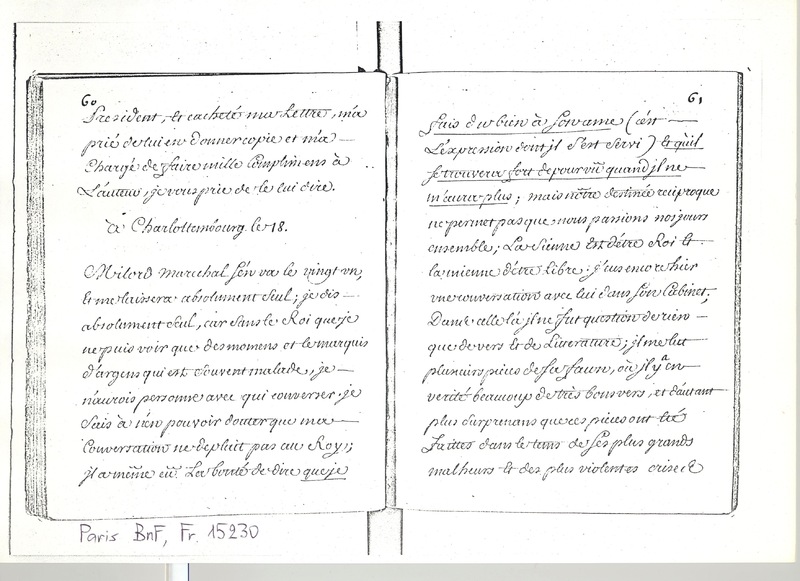 60
President, et cacheté ma Lettre, m'a
prié de lui en donner copie et m'a
Chargé de faire mille Complimens à
L'auteur, je vous prie de le lui dire.
à Charlottembourg. le 18.
Milord marechal s'en va le vingt un,
et me laissera absolument seul; je dis
absolument seul, car sans le Roi que je
ne puis voir que des momens et le marquis
d'argens qui est souvent malade, je
n'aurois personne avec qui converser. je
sais à n'en pouvoir douter que ma
Conversation ne deplait pas au Roy;
il a même eu La bonté de dire que je
61
fais du bien à son ame (c'est
L'expression dont il s'est servi) et qu'il
se trouvera fort depourvu quand il ne
m'aura plus; mais nôtre destinée reciproque
ne permet pas que nous passions nos jours
ensemble; La sienne est d'être Roi et
la mienne d'être libre; j'eus encore hier
une conversation avec lui dans son Cabinet;
Dans celle là il ne fut question de rien
que de vers et de Litterature; il me lut
plusieurs pieces de sa façon, où il y a en
verité beaucoup de très bons vers, et d'autant
plus surprenans que ces pieces ont été
faittes dans le tems de ses plus grands
malheurs et des plus violentes crises
Paris BnF, Fr. 15230